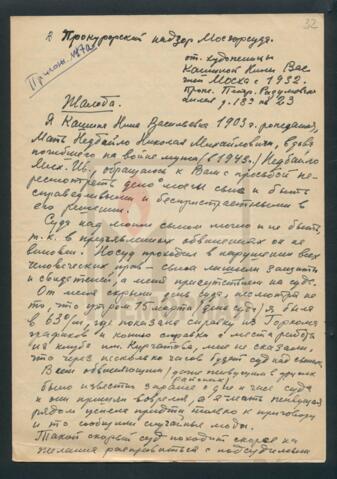 32
В Прокурорский надзор Мосгорсуда.
Прилож. №7а
от художницы
Кашиной Нины Вас
член МОСХа с 1932.
прож. Петр. Разумовск
аллея д. 18 кв 23
Жалоба.
Я Кашина Нина Васильевна 1903г. рождения,
Мать Недбайло Николая Михайловича, вдова
погибшего на войне мужа (1943г.) Недбайло
Мих. Ив., обращаюсь к Вам с просьбой пе-
ресмотреть дело моего сына и быть
справедливыми и беспристрастными в
его решении.
Суда над моим сыном могло и не быть,
т.к. в предъявленных обвинениях он не
виновен. Но суд проходил в нарушении всех
человеческих прав - сына лишили защиты
и свидетелей, а меня присутствия на суде.
От меня скрыли день суда несмотря на
то, что утром 15 марта (день суда) я была
в 63 о/м, где показала справку из Горкома
графиков и копию справки с места работы
из клуба им. Курчатова, мне не сказали,
что через несколько часов будет суд над сыном.
Всем обвиняющим (даже живущим в других
районах)
было известно заранее о дне и часе суда
и они пришли вовремя, а я мать живущая
рядом успела придти только к приговору
и то сообщили случайные люди.
Такой скорый суд походит скорее на
желание расправиться с подсудимым